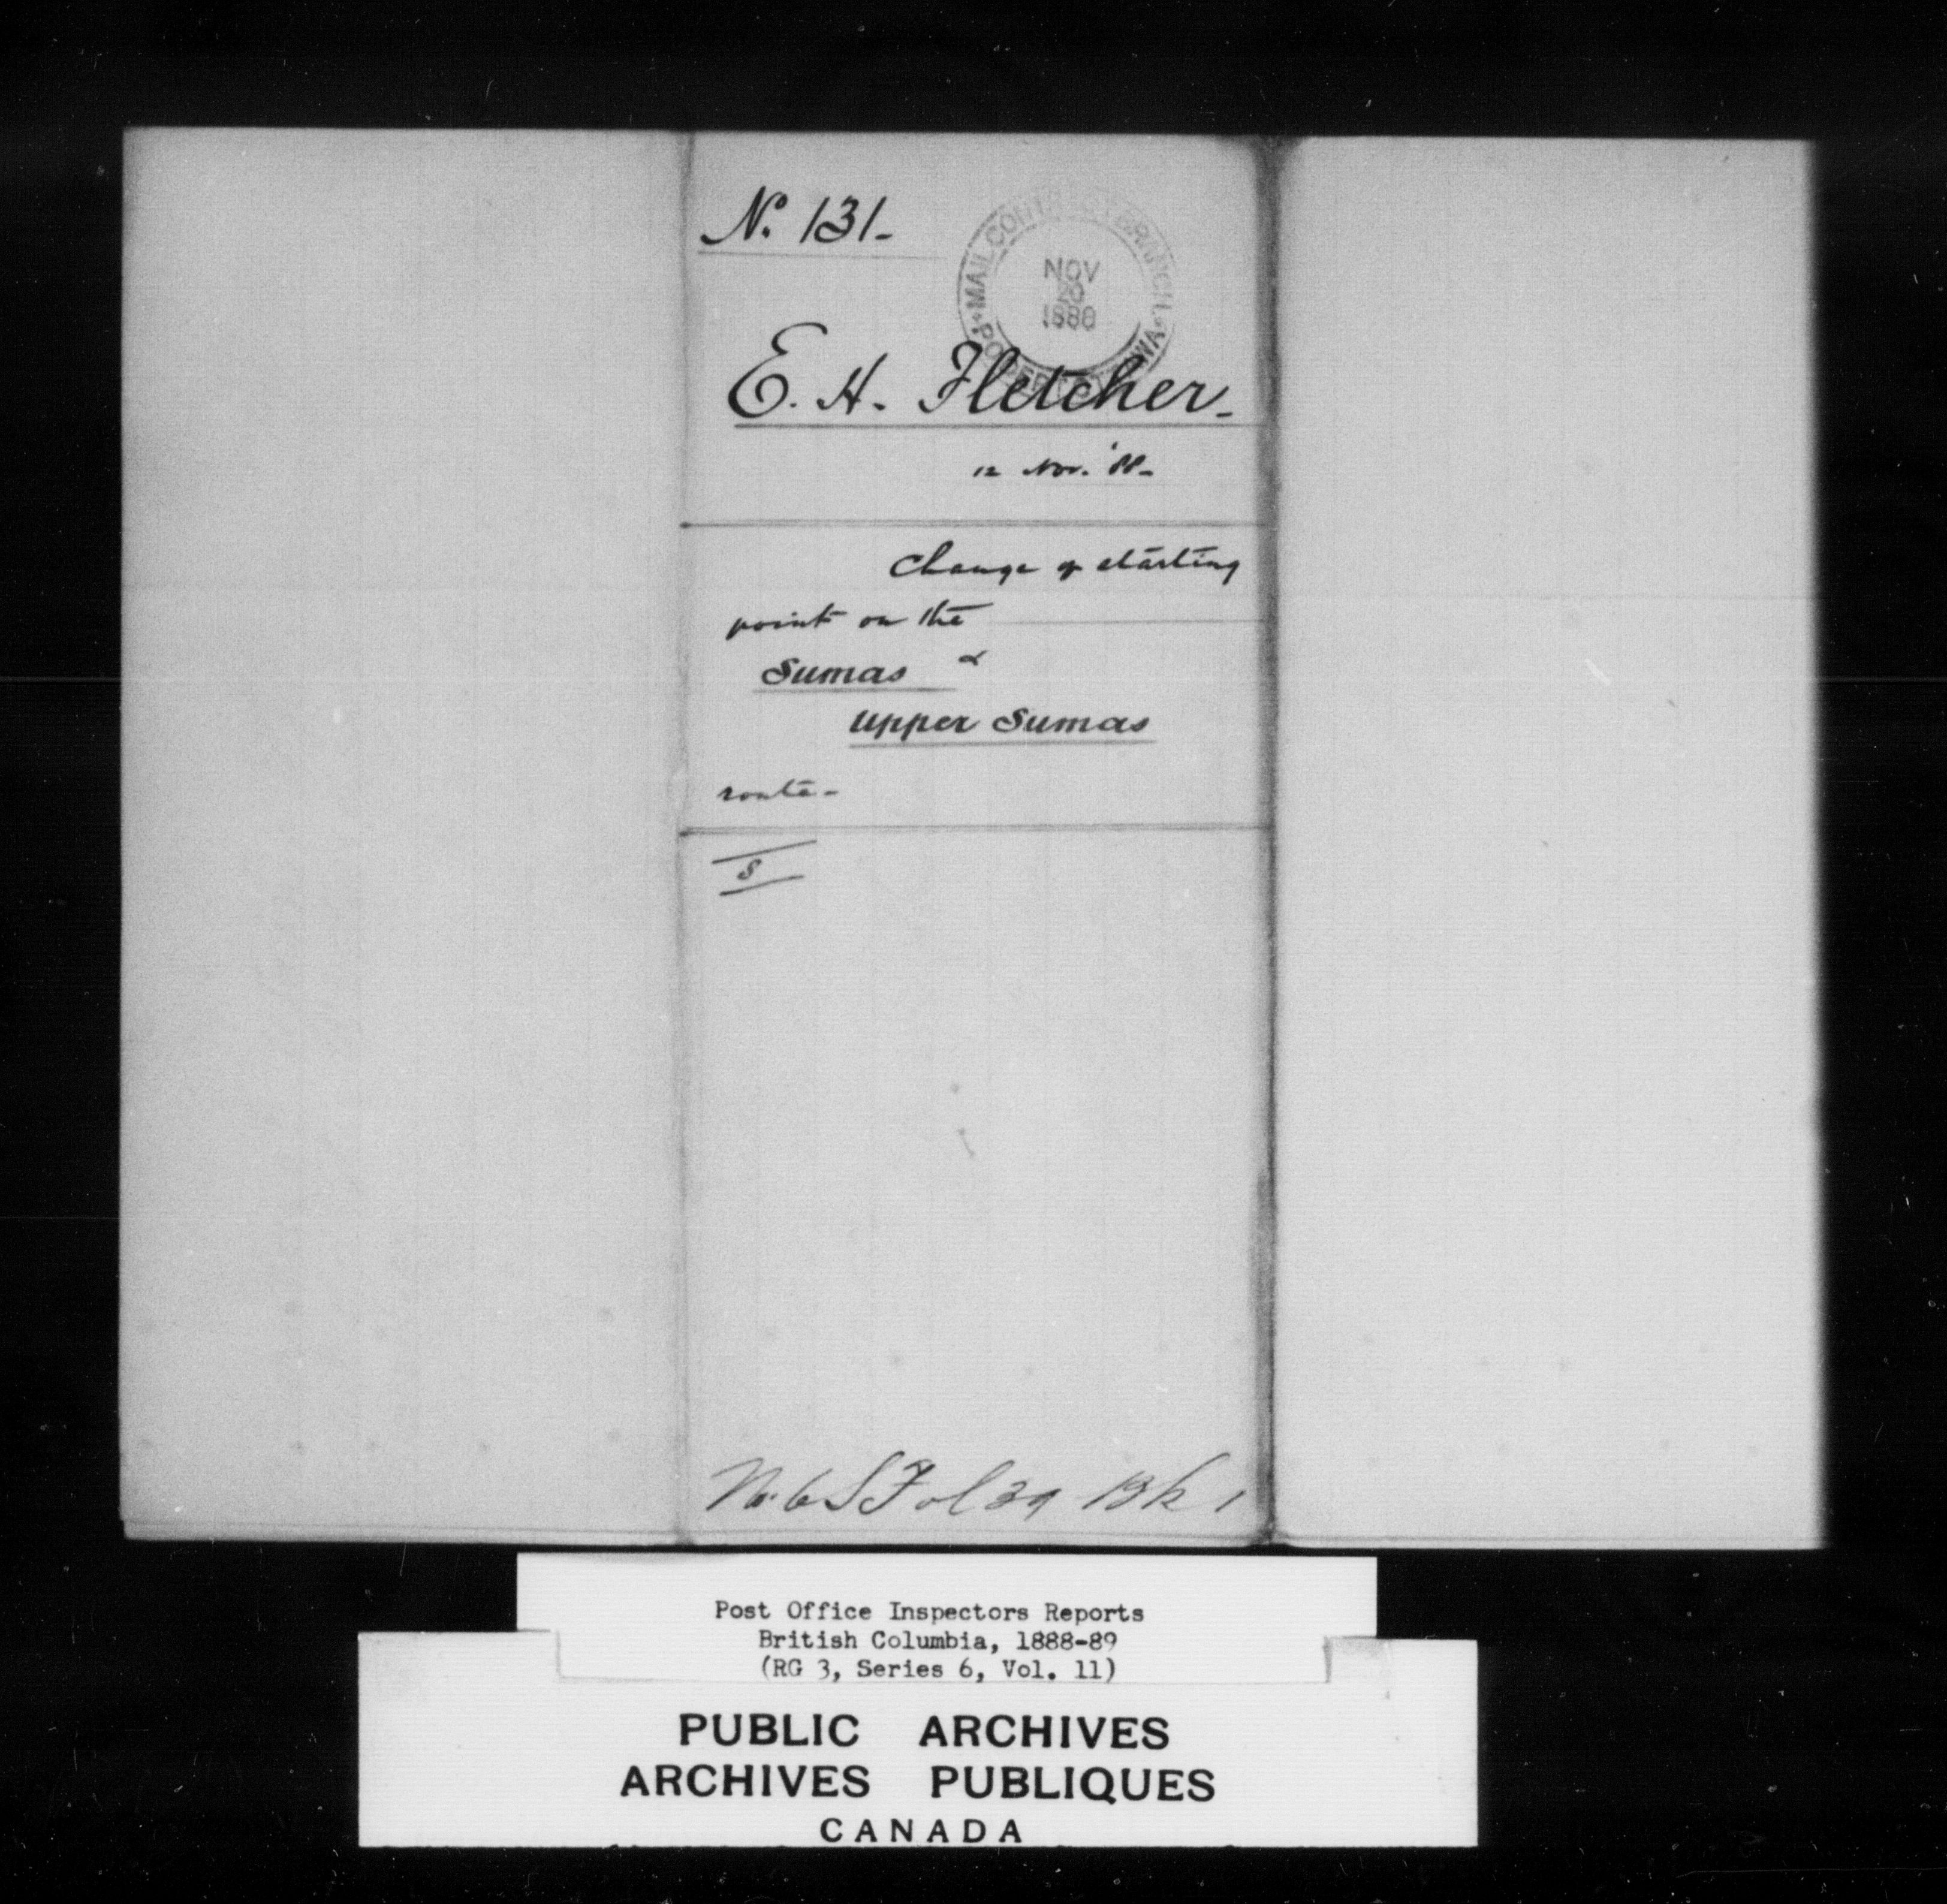 No. 131-
MAIL CONTRACT BRANCH
NOV
20
1888
P.O. DEPT. OTTAWA
E. H. Fletcher-
12 Nov. '88-
Change of starting
point on the
Sumas &
Upper Sumas
route-
S
No. 6 S Fol 39 Bk 1
Post Office Inspectors Reports
British Columbia, 1888-89
(RG 3, Series 6, Vol. 11)
PUBLIC ARCHIVES
ARCHIVES PUBLIQUES
CANADA